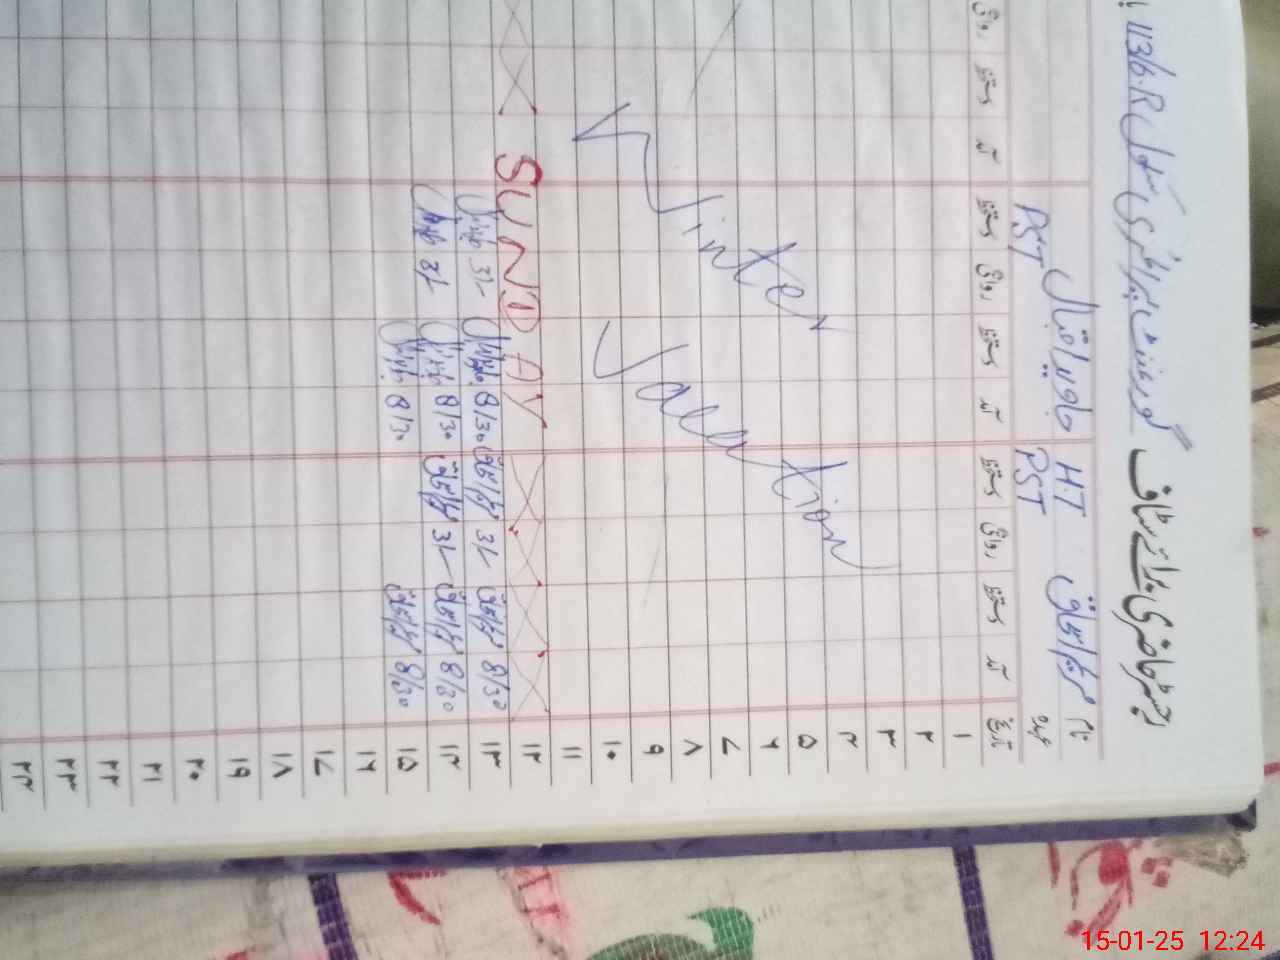 رجسٹر حاضری برائے سٹاف گورنمنٹ پرائمری سکول 113/6.R
نام HT محمد اسحاق جاوید اقبال
عہدہ PST PST
تاریخ آمد دستخط روانگی دستخط آمد دستخط روانگی دستخط آمد دستخط روانگی
۱
۲
۳
۴
۵
۶
۷
۸
۹
۱۰
۱۱
Winter Vacation
۱۲ SUNDAY
۱۳ 8/30 محمد اسحاق 3/- محمد اسحاق 8/30 3/-
۱۴ 8/30 محمد اسحاق 3/- محمد اسحاق 8/30 3/-
۱۵ 8/30 محمد اسحاق 8/30
۱۶
۱۷
۱۸
۱۹
۲۰
۲۱
۲۲
۲۳
۲۴
15-01-25 12:24